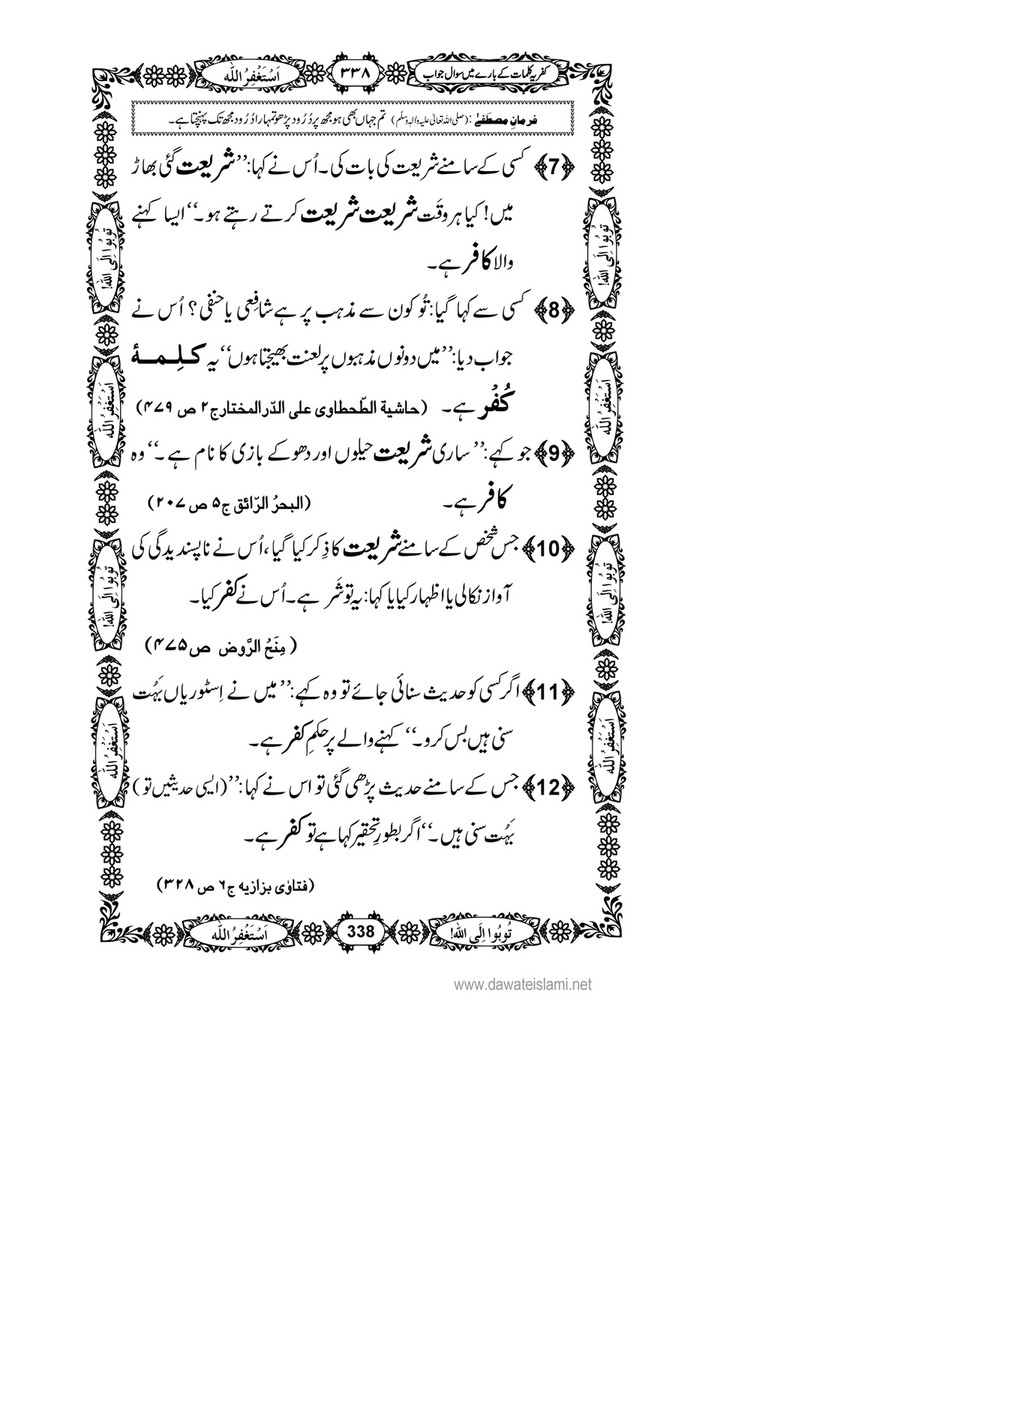 کفریہ کلمات کے بارے میں سوال جواب
۳۳۸
اَسْتَغْفِرُ اللّٰه
فرمانِ مصطفٰے : (صلی اللہ تعالیٰ علیہ والہٖ وسلّم) تم جہاں بھی ہو مجھ پر دُرُود پڑھو تمہارا دُرُود مجھ تک پہنچتا ہے۔
﴿7﴾ کسی کے سامنے شریعت کی بات کی۔ اُس نے کہا: ’’شریعت گئی بھاڑ
میں! کیا ہر وقت شریعت شریعت کرتے رہتے ہو۔‘‘ ایسا کہنے
والا کافر ہے۔
﴿8﴾ کسی سے کہا گیا: تُو کون سے مذہب پر ہے شافِعی یا حنفی؟ اُس نے
جواب دیا: ’’میں دونوں مذہبوں پر لعنت بھیجتا ہوں‘‘ یہ کلِمۂ
کُفْر ہے۔ (حاشية الطّحطاوى على الدّر المختار ج۲ ص ۴۷۹)
﴿9﴾ جو کہے: ’’ساری شریعت حیلوں اور دھوکے بازی کا نام ہے۔‘‘ وہ
کافر ہے۔ (البحرُ الرّائق ج۵ ص ۲۰۷)
﴿10﴾ جس شخص کے سامنے شریعت کا ذِکر کیا گیا، اُس نے ناپسندیدگی کی
آواز نکالی یا اظہار کیا یا کہا: یہ تو شَر ہے۔ اُس نے کفر کیا۔
(مِنَحُ الرَّوض ص ۴۷۵)
﴿11﴾ اگر کسی کو حدیث سنائی جائے تو وہ کہے: ’’میں نے اِسٹوریاں بَہُت
سنی ہیں بس کرو۔‘‘ کہنے والے پر حکمِ کفر ہے۔
﴿12﴾ جس کے سامنے حدیث پڑھی گئی تو اس نے کہا: ’’(ایسی حدیثیں تو)
بَہُت سنی ہیں۔‘‘ اگر بطورِ تحقیر کہا ہے تو کفر ہے۔
(فتاوٰى بزازيه ج۶ ص ۳۲۸)
تُوبُوا اِلَی اللّٰه!
اَسْتَغْفِرُ اللّٰه
تُوبُوا اِلَی اللّٰه!
اَسْتَغْفِرُ اللّٰه
تُوبُوا اِلَی اللّٰه!
اَسْتَغْفِرُ اللّٰه
تُوبُوا اِلَی اللّٰه!
اَسْتَغْفِرُ اللّٰه
تُوبُوا اِلَی اللّٰه!
338
اَسْتَغْفِرُ اللّٰه
www.dawateislami.net